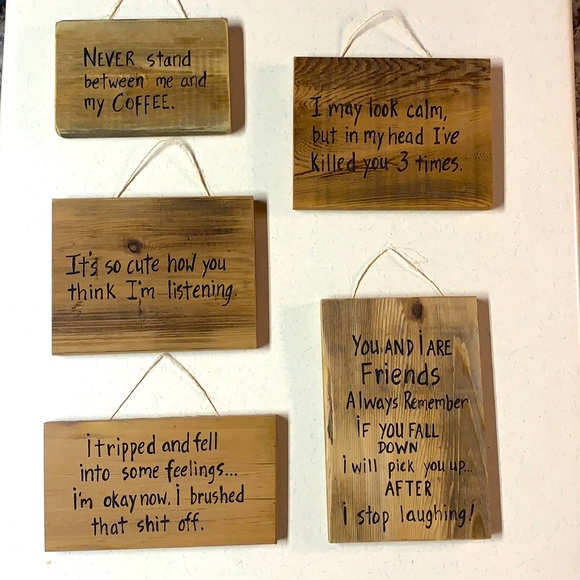 NEVER stand
between me and
my COFFEE.
I may look calm,
but in my head I've
Killed you 3 times.
It's so cute how you
think I'm listening.
i tripped and fell
into some feelings...
i'm okay now. i brushed
that shit off.
YOU AND i ARE
Friends
Always Remember
iF YOU FALL
DOWN
i will pick you up...
AFTER
i stop laughing!